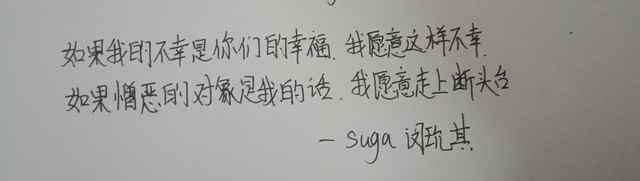 如果我的不幸是你们的幸福.我愿意这样不幸.
如果憎恶的对象是我的话.我愿意走上断头台
– suga 闵玧其